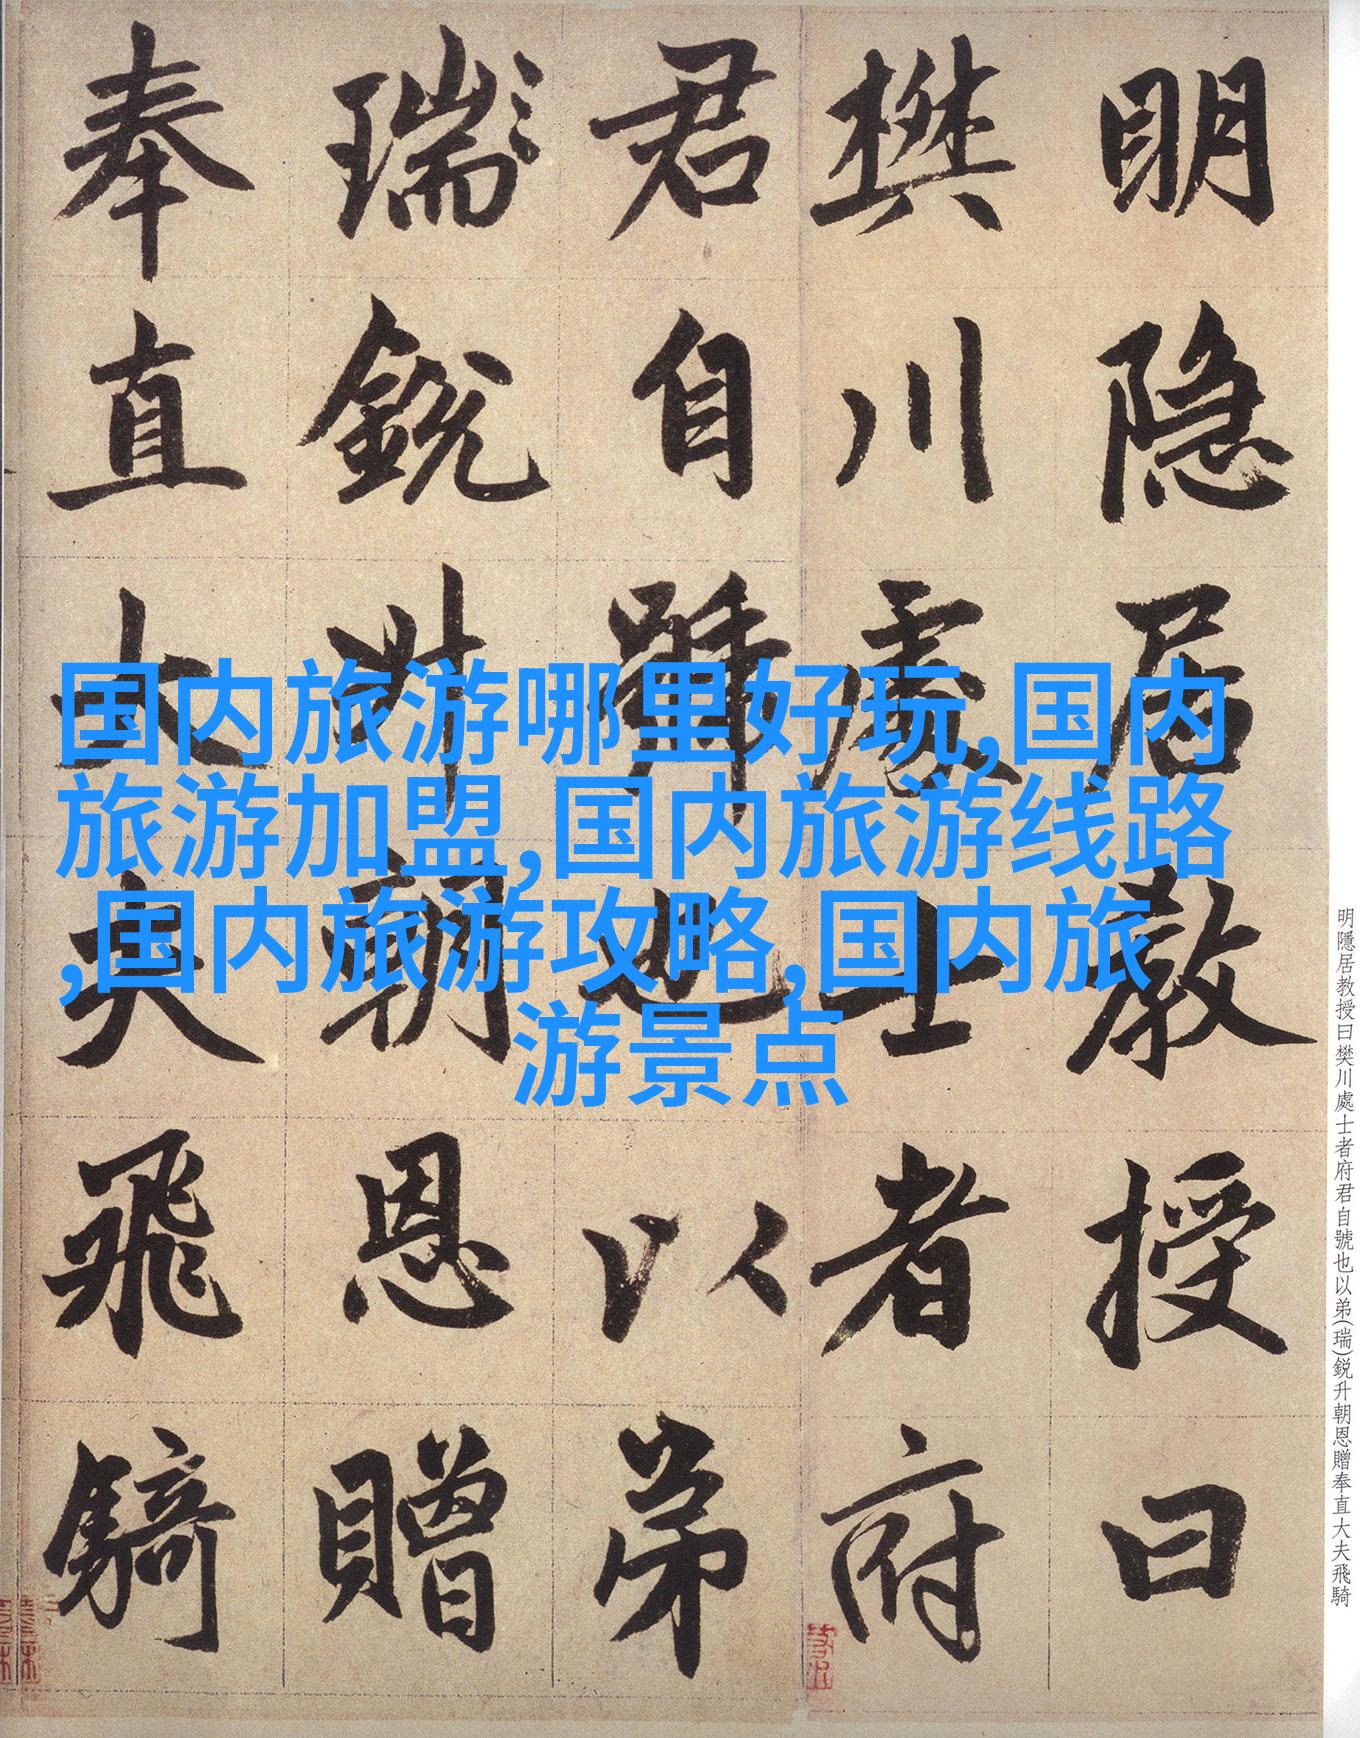 明隐居教授曰
樊川處士者府
君自號也以弟
瑞銳升朝恩贈
奉直大夫飛騎
国内旅游哪里好玩,国内
旅游加盟,国内旅游线路
,国内旅游攻略,国内旅
游景点
明隱居教授曰樊川處士者府君自號也以弟(瑞)銳升朝恩贈奉直大夫飛騎